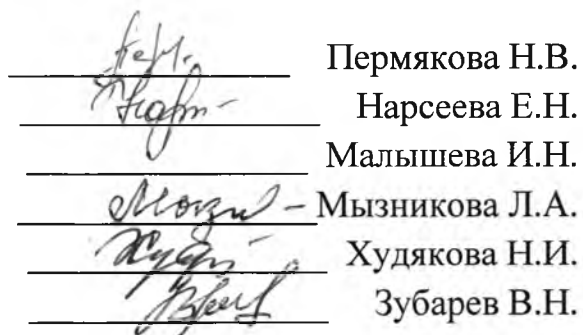 Пермякова Н.В.
Нарсеева Е.Н.
Малышева И.Н.
Мызникова Л.А.
Худякова Н.И.
Зубарев В.Н.